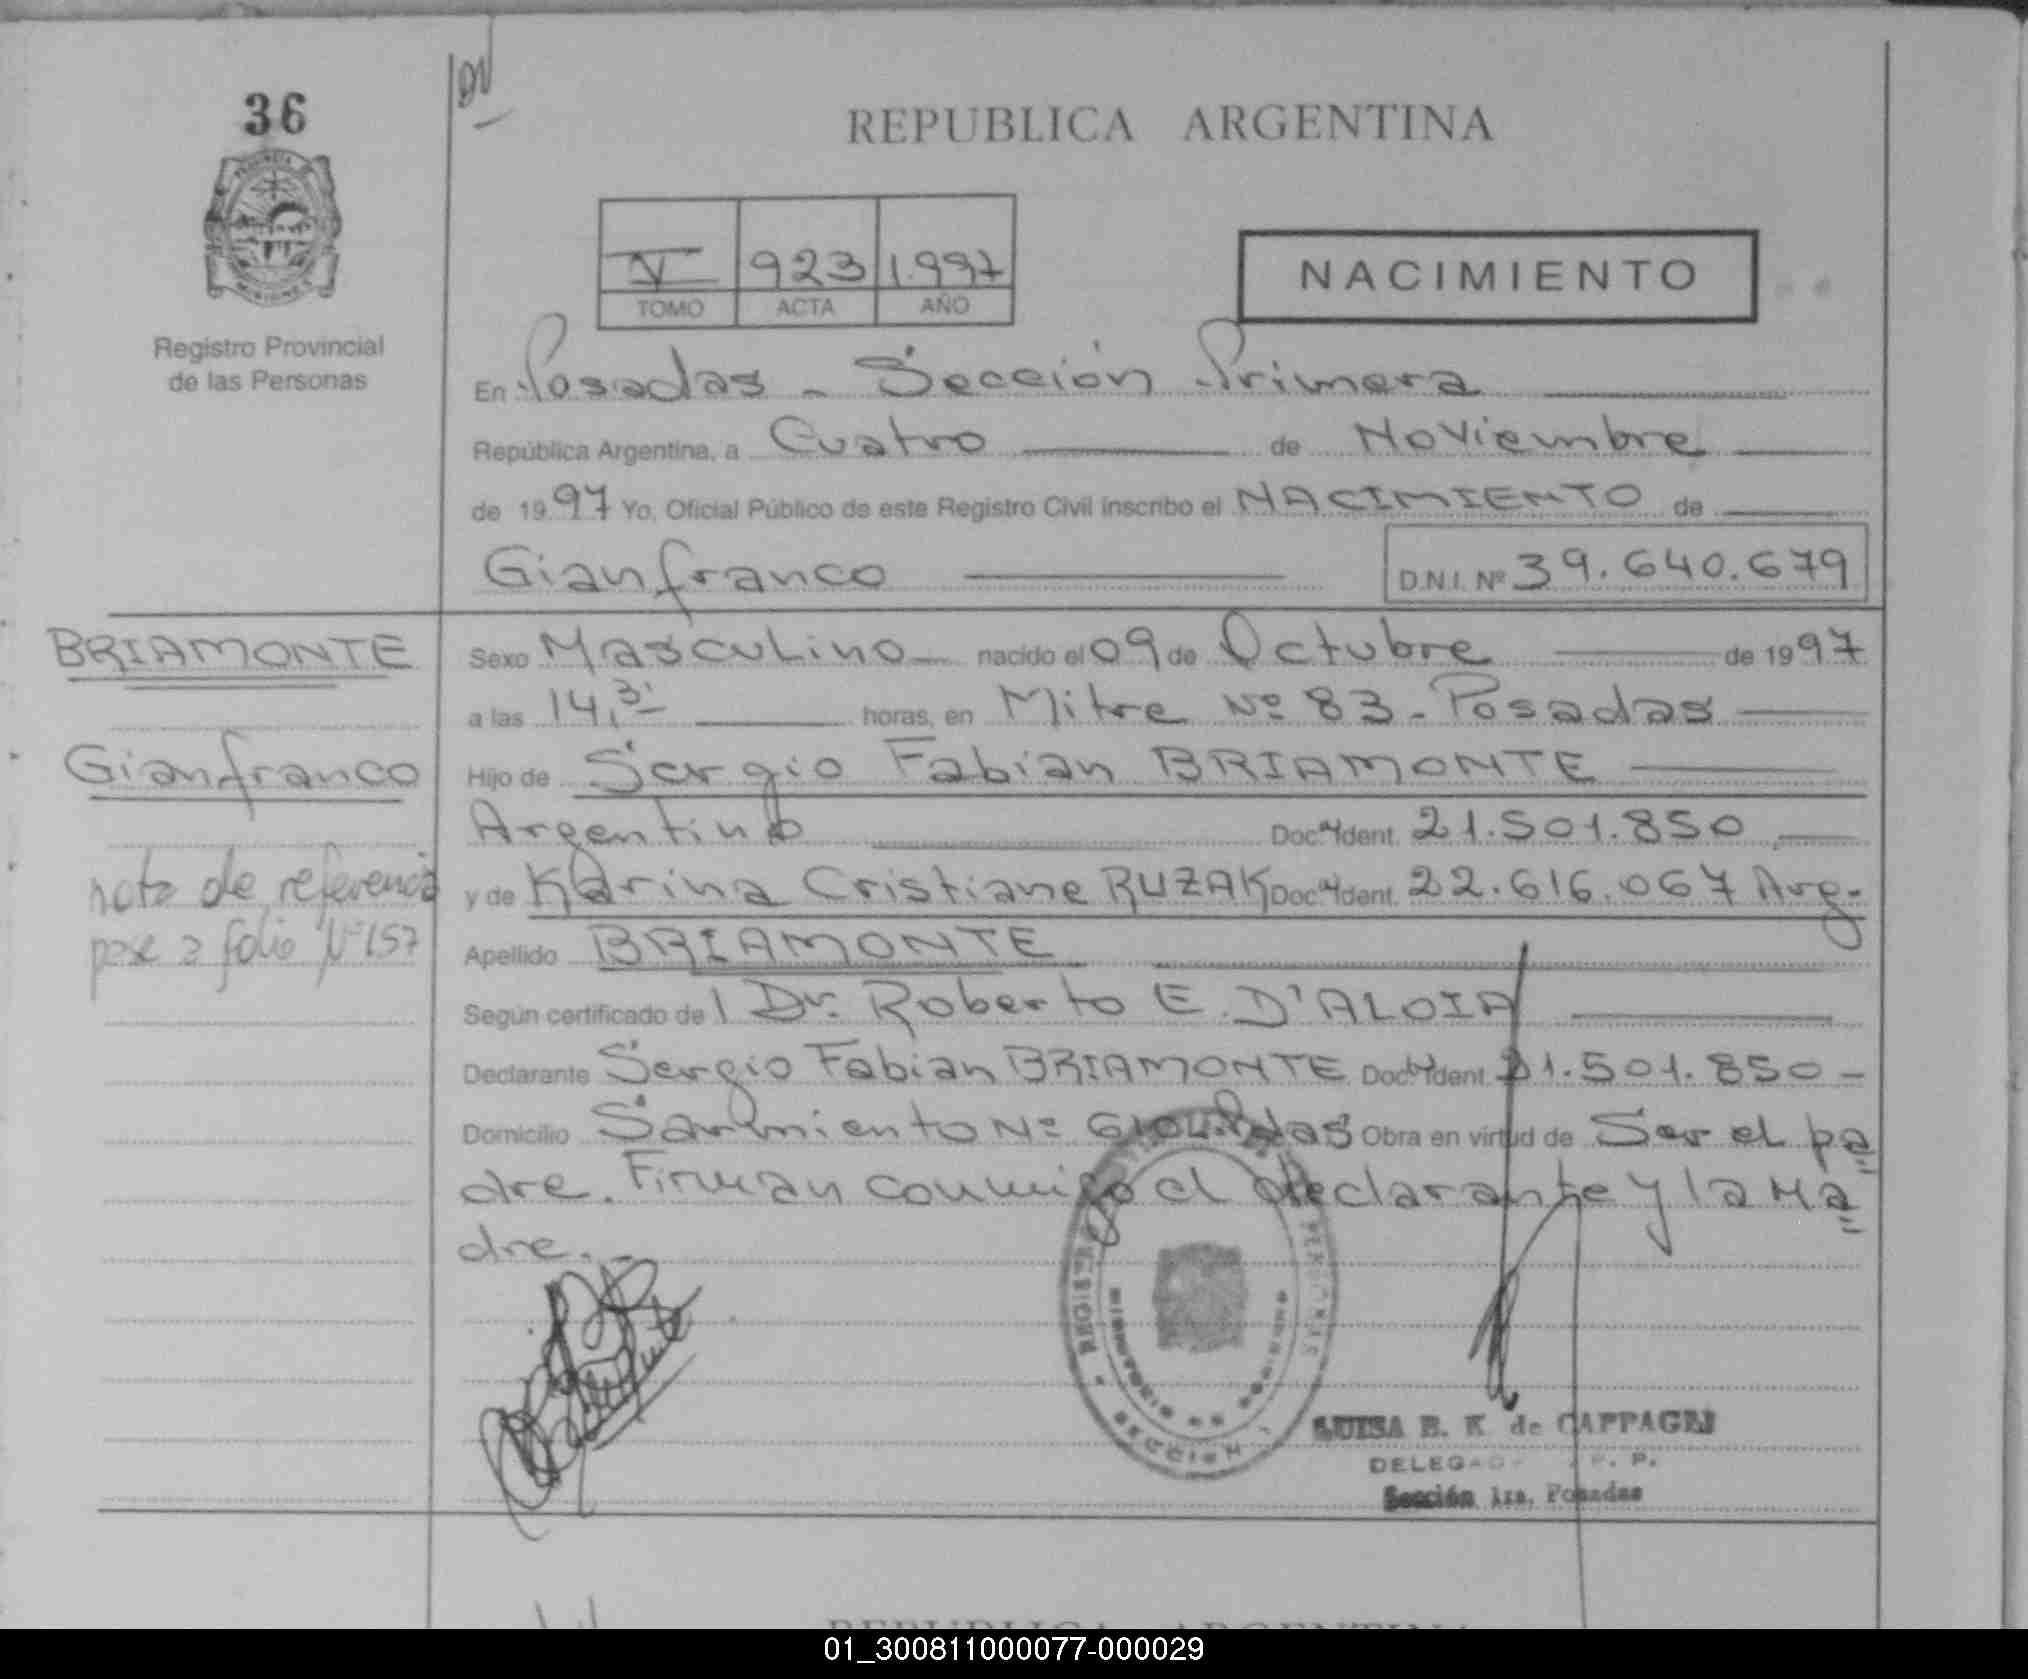 36
REPUBLICA ARGENTINA
V 923 1.997
TOMO ACTA AÑO
NACIMIENTO
PROVINCIA DE
MISIONES
Registro Provincial
de las Personas
En Posadas - Sección Primera
República Argentina, a Cuatro de Noviembre
de 1997 Yo, Oficial Público de este Registro Civil inscribo el NACIMIENTO de
Gianfranco D.N.I. Nº 39.640.679
BRIAMONTE
Gianfranco
nota de referencia
pase a folio Nº 157
Sexo Masculino nacido el 09 de Octubre de 1997
a las 14,3' horas, en Mitre Nº 83 - Posadas
Hijo de Sergio Fabian BRIAMONTE
Argentino Doc. Ident. 21.501.850
y de Karina Cristiane RUZAK Doc. Ident. 22.616.067 Arg.
Apellido BRIAMONTE
Según certificado del Dr. Roberto E. D'ALOIA
Declarante Sergio Fabian BRIAMONTE Doc. Ident. 21.501.850 -
Domicilio Sarmiento Nº Obra en virtud de Ser el pa=
dre. Firman conmigo el declarante y la Ma=
dre. -
LUISA B. K. de CAPPAGLI
Sección 1ra. Posadas
REPUBLICA ARGENTINA
01_300811000077-000029